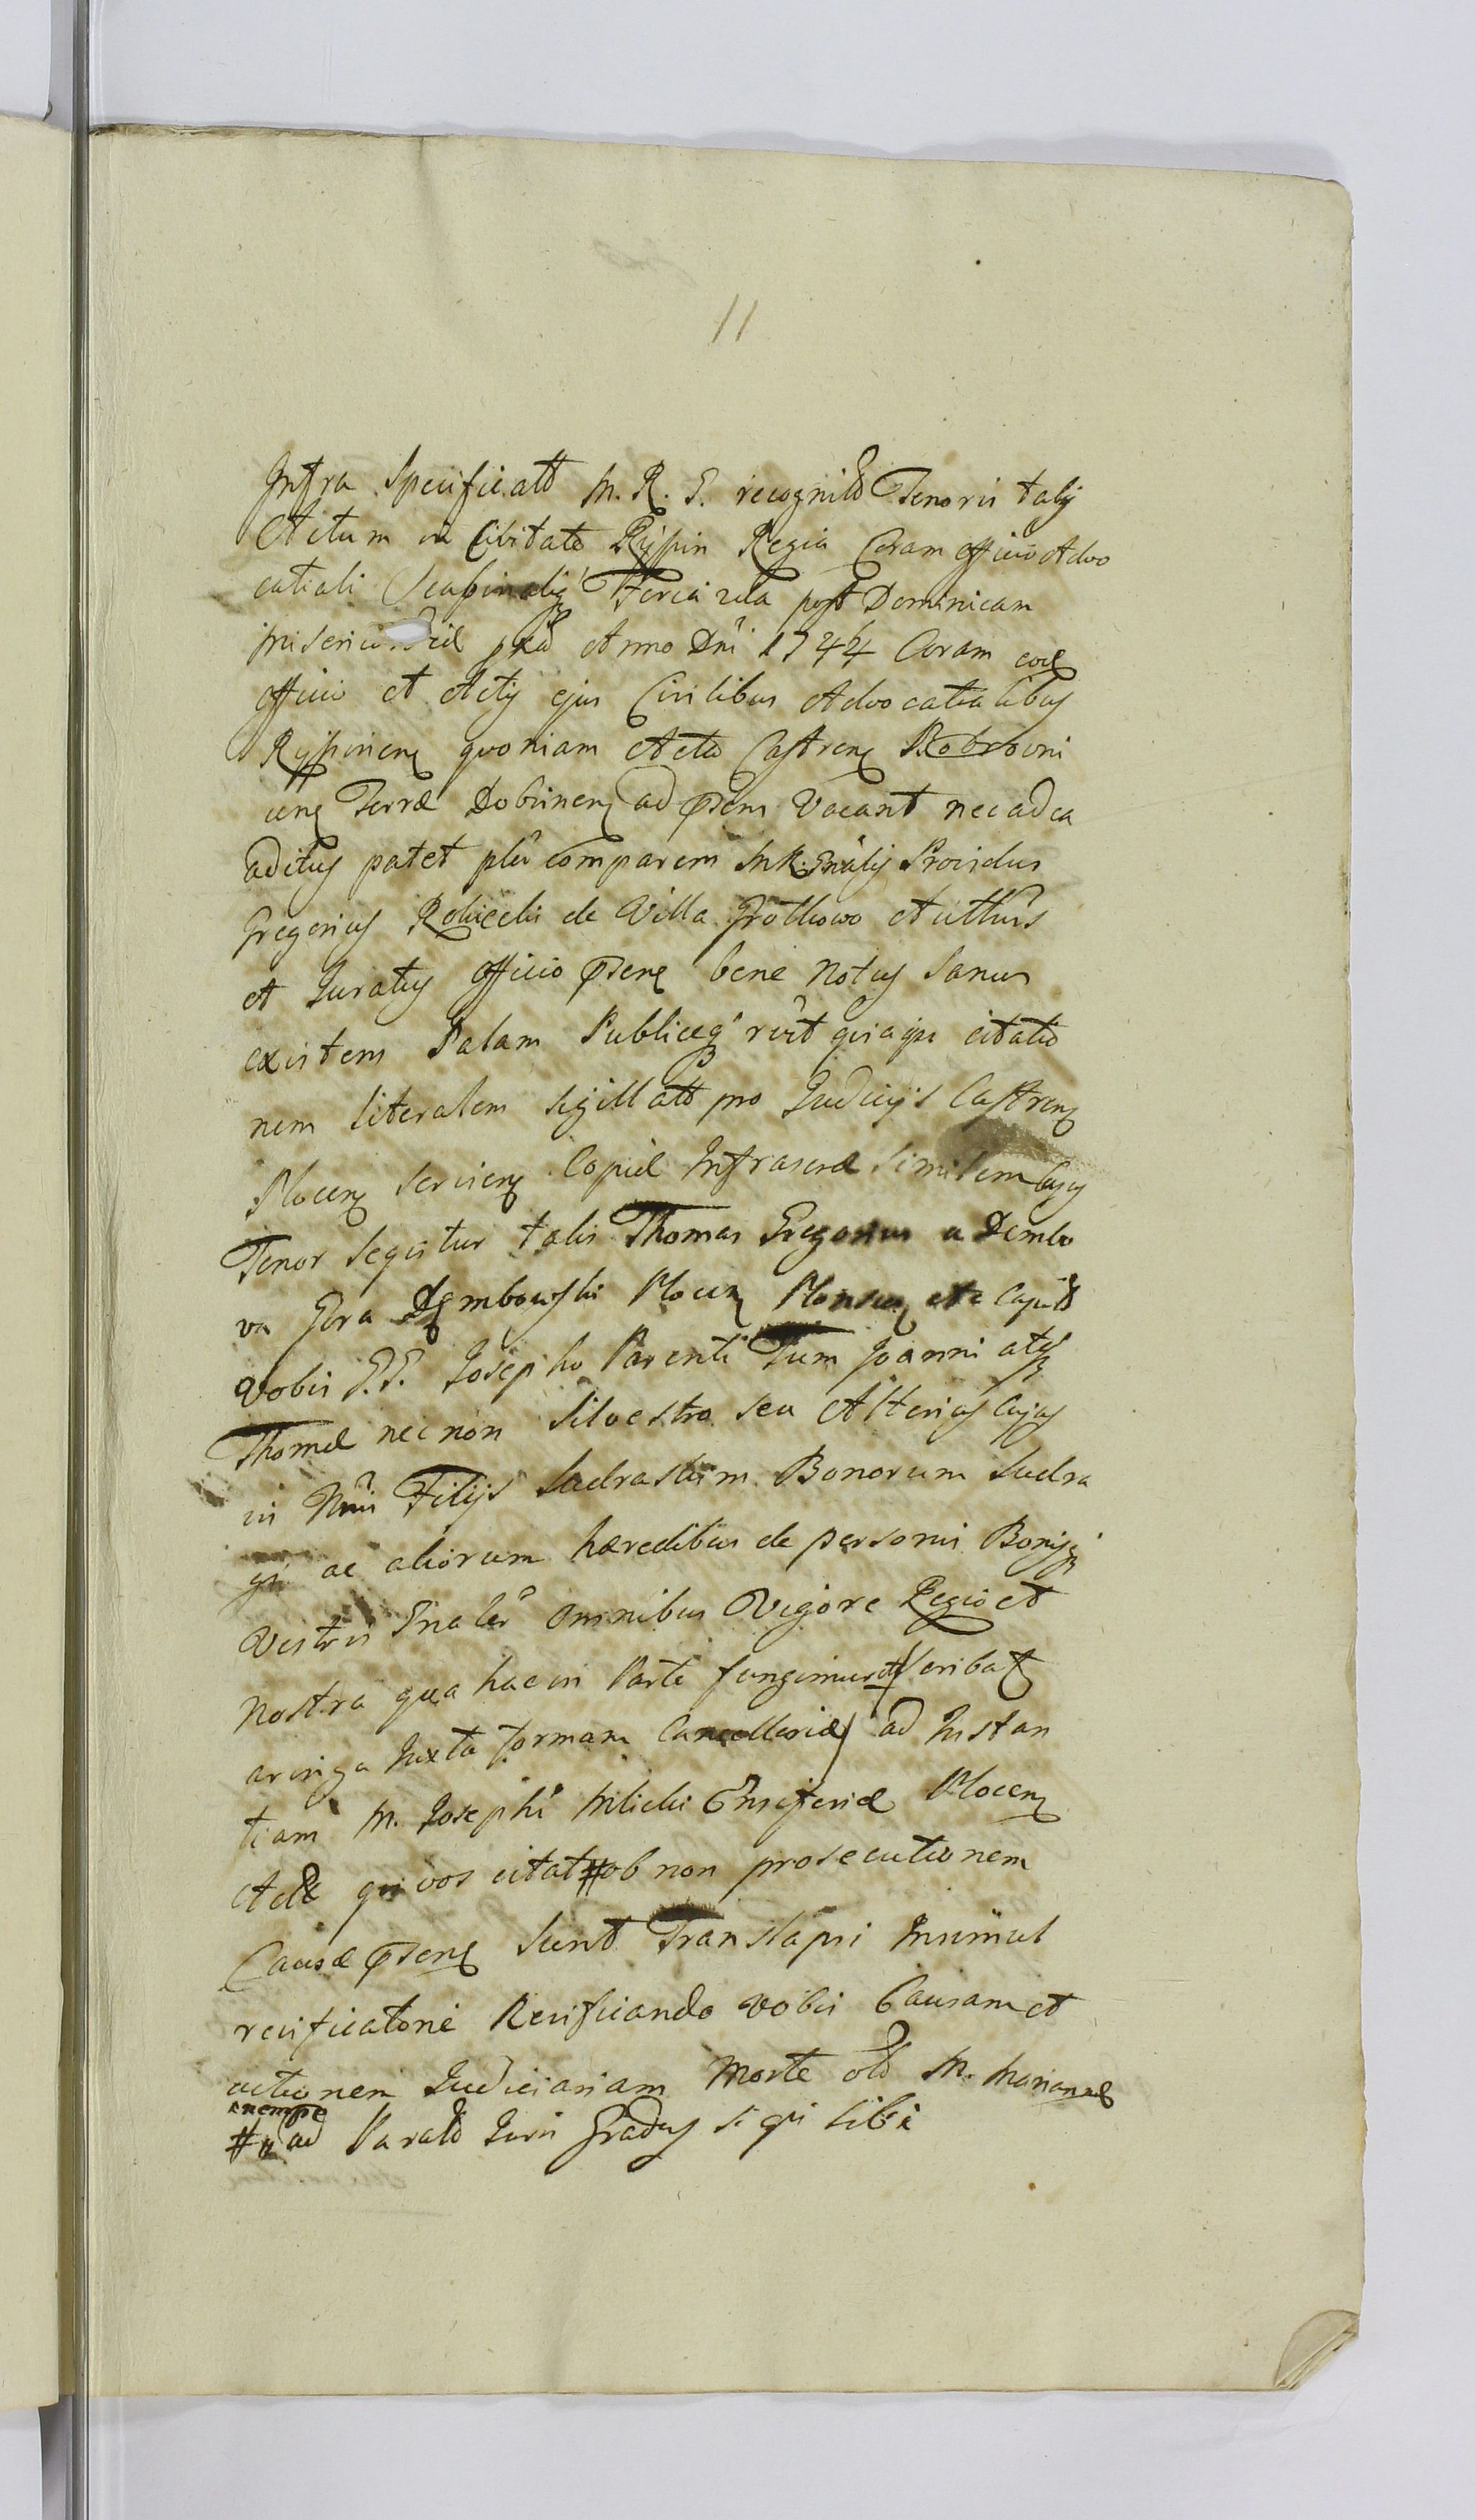 11
Infra Specificatt M. R. G. recognitô Tenoris talis
Actum in Civitate Rypin Regia Coram officio Advo
catiali Scabinaliq Feria 2da post Dominicam
misericordiæ pxâ Anno Dni 1744 Coram eod
officio et Actis ejus Civilibus Advocatialibus
Rypinens quoniam Acta Castrens Bobrowni
cens Terræ Dobrinens ad præsens Vacant nec ad ea
aditus patet plr comparens Mnrlis Providus
Gregorius de Villa Autthus
et Juratus officio præsens bene Notus Sanus
existens Palam Publiceq rvit quia ipse citatio
nem literalem sigillatt pro Judicijs Castrens
Plocens serviens Copiæ Infrascræ Similem Cujus
Tenor Sequitur talis Thomas Gregorius a Dembo
va Gora Dembowski Plocens Plonscens etc Capits
vobis G.G. Josepho Parenti Tum Joanni atq
Thomæ necnon Silvestro seu Alterius Cujus
vis Nnis Filijs Sudraskim Bonorum Sudra
gi ac aliorum hæredibus de personis Bonisq
Vestris Gnaler omnibus Vigore Regio et
nostra qua hac in Parte fungimur Scribat
aringa Juxta formam Cancellariæ) ad Instan
tiam M. Josephi Milicki Ensiferidæ Plocens
Acts qui vos citat # ob non prosecutionem
Causæ præsens Sunt Translapsi Insimul
reificatorie Reificando vobis Causam et
actionem Judiciariam Morte olô M. Mariannæ
nempe
# ad Paratô Juris Gradus si qui tibi